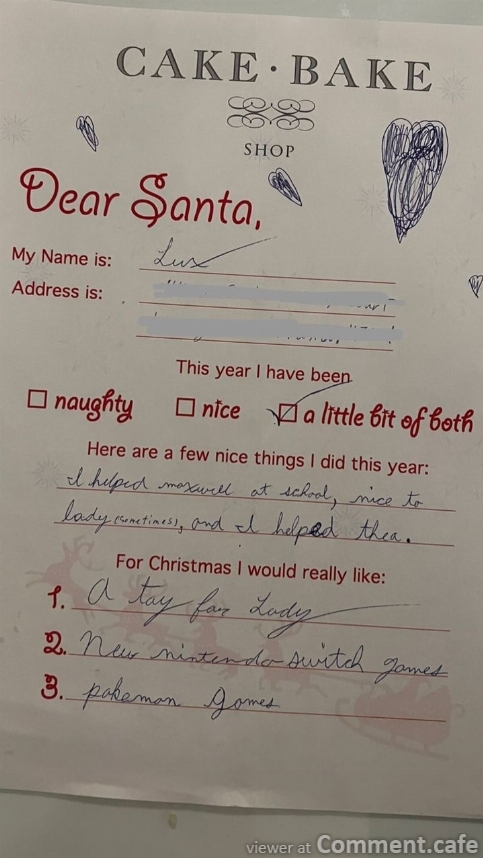 CAKE · BAKE
SHOP
Dear Santa,
My Name is: Lux
Address is:
This year I have been
naughty nice a little bit of both
Here are a few nice things I did this year:
I helped maxwell at school, nice to
lady (sometimes), and I helped thea.
For Christmas I would really like:
1. A toy for Lady
2. New nintendo switch games
3. pokemon games
viewer at Comment.cafe